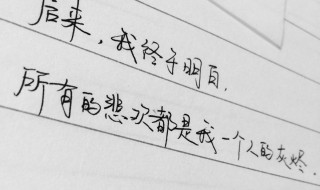 后来，我终于明白，
所有的悲欢都是我一个人的灰烬.